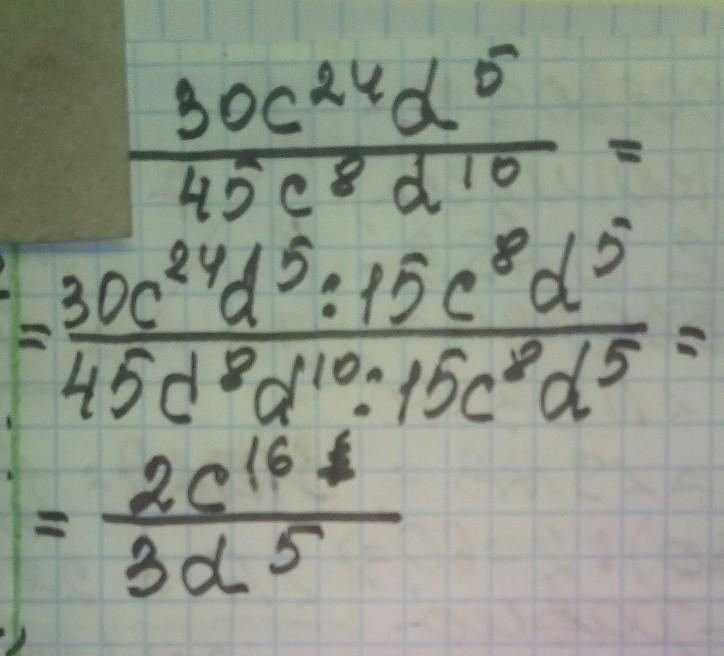 30c²⁴d⁵
45c⁸d¹⁰ =
= 30c²⁴d⁵:15c⁸d⁵
45d⁸d¹⁰:15c⁸d⁵ =
= 2c¹⁶
3d⁵